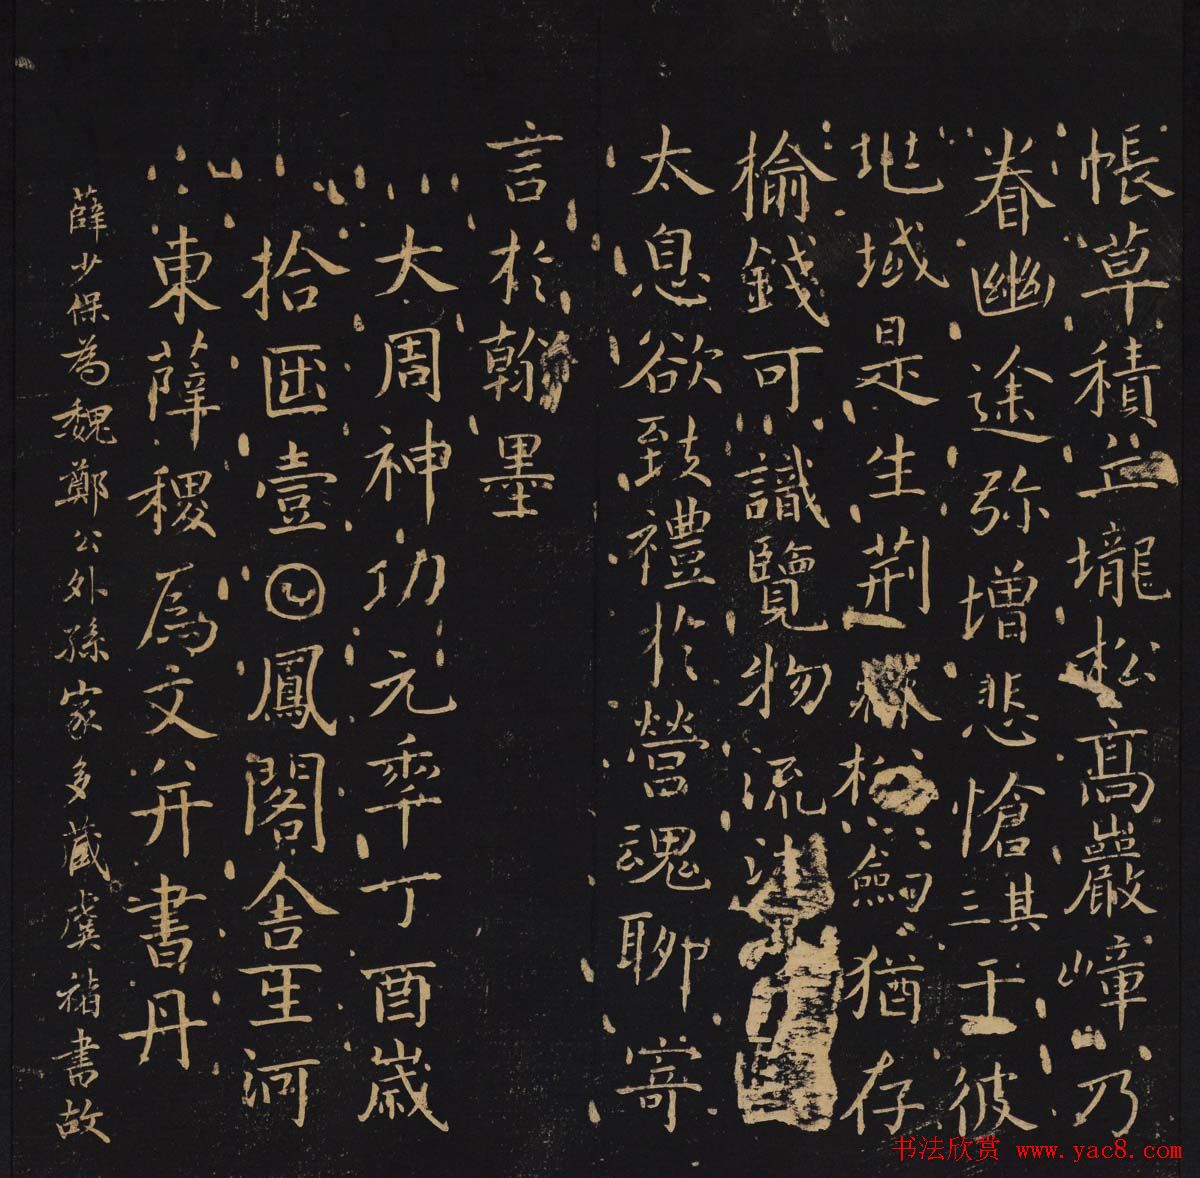 帳草積丘壠松高巖嶂乃
眷幽途弥增悲愴其三于彼
地域是生荆松劔猶存
榆錢可識覽物流
太息欲致禮於營魂聊寄
言於翰墨
大周神功元𠡦丁酉歲
拾𠥱壹𡆠鳳閣舍𤯔河
東薛稷為文并書丹
薛少保為魏鄭公外孫家多藏虞褚書故
书法欣赏 www.yac8.com